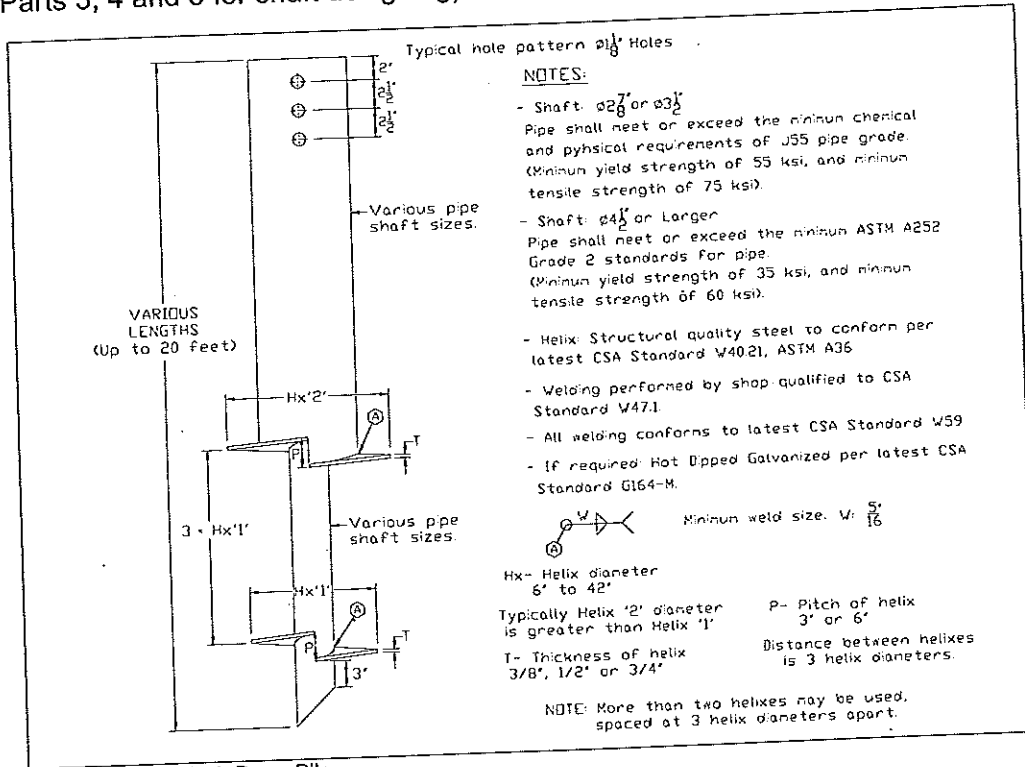 Parts 3, 4 and 6 for shaft
Typical hole pattern ø1 1/8" Holes
2"
2 1/2"
2 1/2"
Various pipe
shaft sizes.
VARIOUS
LENGTHS
(Up to 20 feet)
Hx'2'
A
T
P
3 * Hx'1'
Various pipe
shaft sizes.
Hx'1'
A
T
P
3"
NOTES:
- Shaft: ø2 7/8" or ø3 1/2"
Pipe shall meet or exceed the minimum chemical
and pyhsical requirements of J55 pipe grade.
(Minimum yield strength of 55 ksi, and minimum
tensile strength of 75 ksi).
- Shaft: ø4 1/2" or Larger
Pipe shall meet or exceed the minimum ASTM A252
Grade 2 standards for pipe.
(Minimum yield strength of 35 ksi, and minimum
tensile strength of 60 ksi).
- Helix: Structural quality steel to conform per
latest CSA Standard W40.21, ASTM A36
- Welding performed by shop qualified to CSA
Standard W47.1.
- All welding conforms to latest CSA Standard W59
- If required: Hot Dipped Galvanized per latest CSA
Standard G164-M.
W
A
Minimum weld size. W: 5/16"
Hx- Helix diameter
6" to 42"
Typically Helix '2' diameter
is greater than Helix '1'
T- Thickness of helix
3/8", 1/2" or 3/4"
P- Pitch of helix
3" or 6"
Distance between helixes
is 3 helix diameters.
NOTE: More than two helixes may be used,
spaced at 3 helix diameters apart.